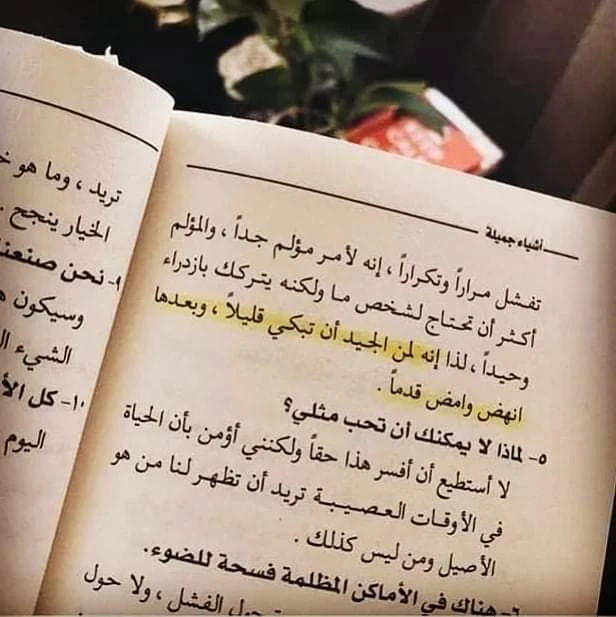 أشياء جميلة
تفشل مراراً وتكراراً ، إنه لأمر مؤلم جداً ، والمؤلم
أكثر أن تحتاج لشخص ما ولكنه يتركك بازدراء
وحيداً ، لذا إنه لمن الجيد أن تبكي قليلاً ، وبعدها
انهض وامض قدماً .
٥- لماذا لا يمكنك أن تحب مثلي؟
لا أستطيع أن أفسر هذا حقاً ولكنني أؤمن بأن الحياة
في الأوقات العصيبة تريد أن تظهر لنا من هو
الأصيل ومن ليس كذلك .
٦- هناك في الأماكن المظلمة فسحة للضوء.
حول الفشل ، ولا حول
تريد ، وما هو
الخيار ينجح .
٩- نحن صنعنا
وسيكون
الشيء
١٠- كل
اليوم